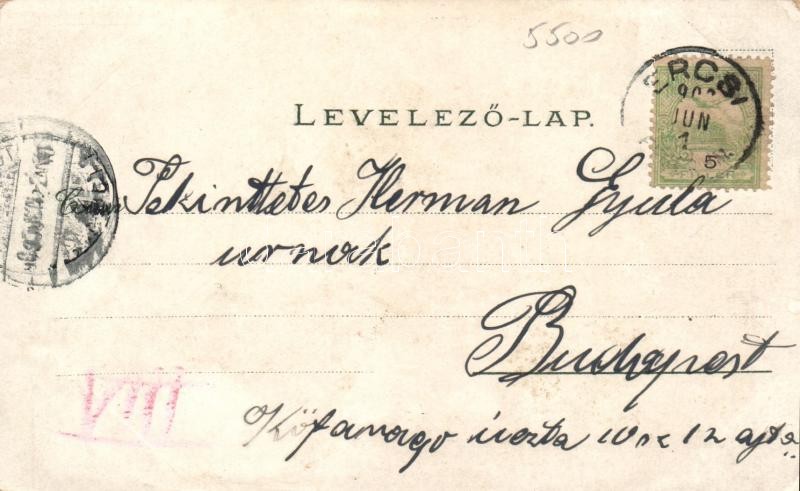 5500
LEVELEZŐ-LAP.
ERCSI
JUN
5
Tekinttetes Herman Gyula
urnak
Budapest
VIII
Kőfarago úczta 10 sz 12 ajto